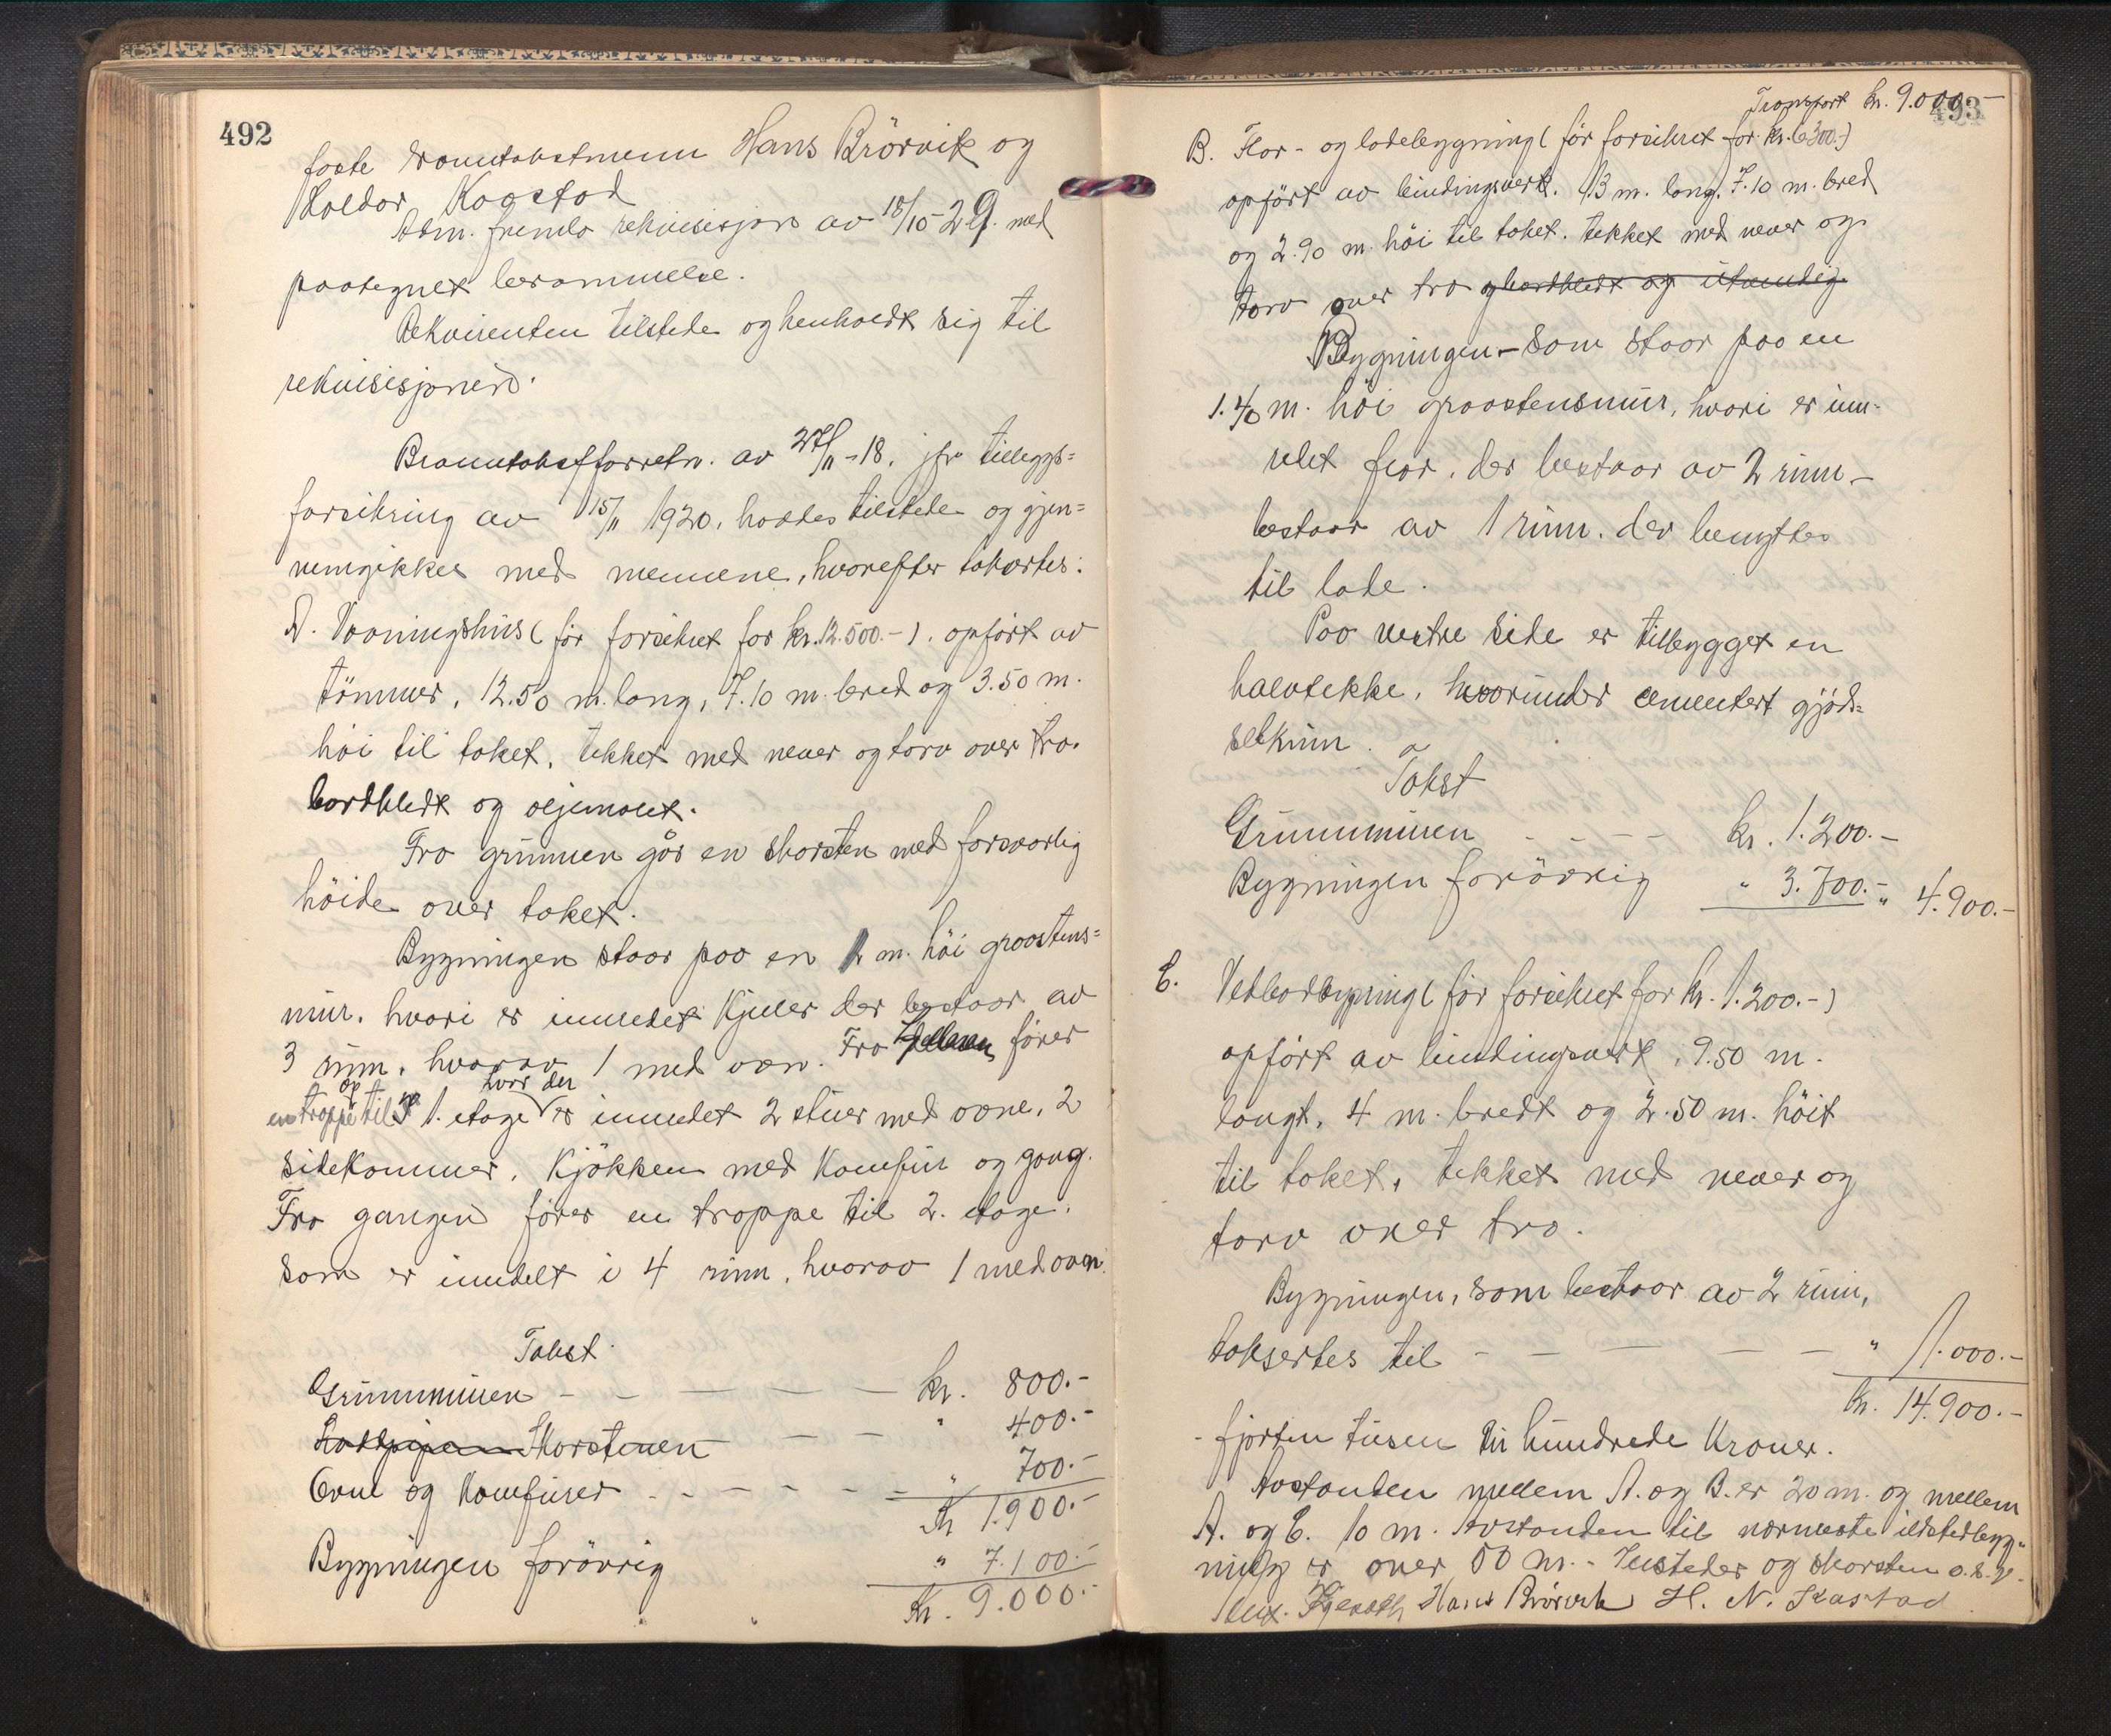 492
faste branntakstmenn Hans Brörvik og
Haldor Kaastad
Adm. fremla rekvisisjon av 18/10-29. med
paategnet berammelse.
Rekvirenten tilstede og henholdt sig til
rekvisisjonen.
Branntakstforretn. av 27/11-18. jfr tilleggs=
forsikring av 15/11 1920, havdes tilstede og gjen=
nemgikkes med mennene, hvorefter takertes:
A. Vaaningshus (för forsikret for kr. 12.500.-). opfört av
tömmer, 12.50 m. lang, 7.10 m. bred og 3.50 m.
höi til taket, tekket med never og torv over tro.
bordkledt og oljemalt.
Fra grunnen går en skorsten med forsvarlig
höide over taket.
Bygningen staar paa en 2 m. höi graastens=
mur. hvori er innredet kjeller der bestaar av
3 rum, hvorav 1 med ovn. Fra kjelleren förer
en trappe op til 1. etage hvor der er innredet 2 stuer med ovne, 2
sidekammer, kjökken med komfur og gang.
Fra gangen förer en trappe til 2. etage.
som er inndelt i 4 rum, hvorav 1 med ovn.
Takst.
Grunnmuren - - - - - kr. 800.-
Skorstenen - - - " 400.-
Ovne og komfurer - - - - - " 700.-
Kr 1.900.-
Bygningen forövrig " 7.100.-
Kr. 9.000.-
493
Transport kr. 9.000.-
B. Flor- og ladebygning (för forsikret for kr. 6300.-)
opfört av bindingsverk. 13 m. lang, 7.10 m. bred
og 2.90 m. höi til taket. tekket med never og
torv over tro og bordkledt og utvendig
Bygningen - som staar paa en
1.40 m. höi graastensmur, hvori er inn-
redet flor, der bestaar av 2 rum -
bestaar av 1 rum. der benyttes
til lade.
Paa vestre side er tilbygget en
halvtekke, hvorunder cementert gjöd=
selkum.
Takst
Grunnmuren - - - - kr. 1.200.-
Bygningen forövrig " 3.700.- " 4.900.-
C. Vedbodbygning (för forsikret for kr. 1.200.-)
opfört av bindingsverk, 9.50 m.
langt, 4 m. bredt og 2.50 m. höit
til taket, tekket med never og
torv over tro.
Bygningen, som bestaar av 2 rum,
taksertes til - - - - - " 1.000.-
Kr. 14.900.-
- fjorten tusen ni hundrede kroner.
Avstanden mellem A. og B. er 20 m. og mellem
A. og C. 10 m. Avstanden til nærmeste ildstedbyg-
ning er over 50 m. - Ildsteder og skorsten o.s.v.
Hans Brörvik H. N. Kastad